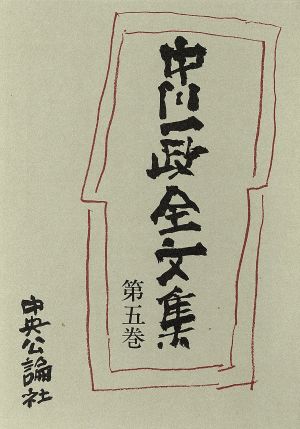 中川一政全文集
第五巻
中央公論社